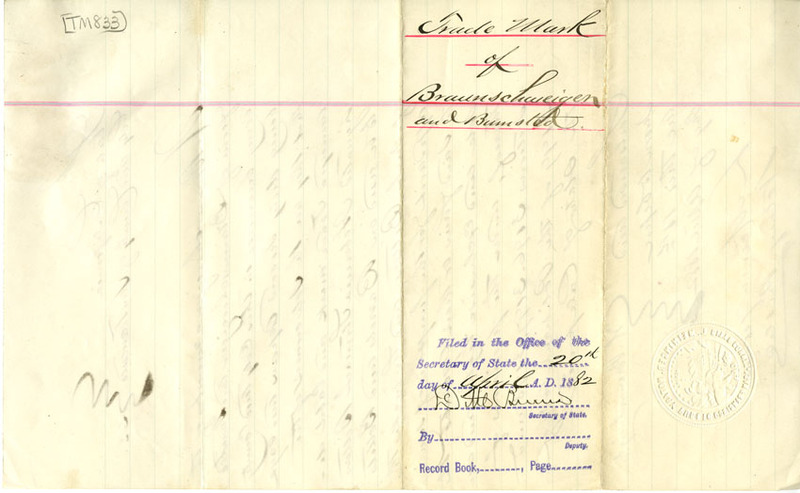 [TM833]
Trade Mark
of
Braunschweiger
and Bumsted.
Filed in the Office of the
Secretary of State the 20th
day of April A. D. 1882
Secretary of State.
By
Deputy.
Record Book, , Page